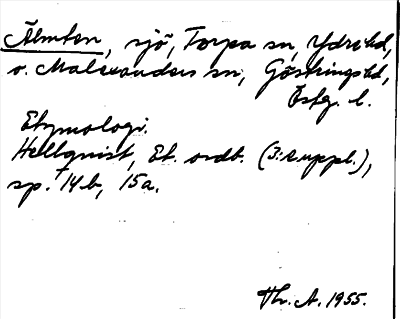 Älmten, sjö, Torpa sn, Ydre hd,
o. Malexanders sn, Göstrings hd,
Östg. l.
Etymologi.
Hellquist, Et. ordb. (3:e uppl.),
sp. 14 b, 15 a.
Hr. A. 1955.